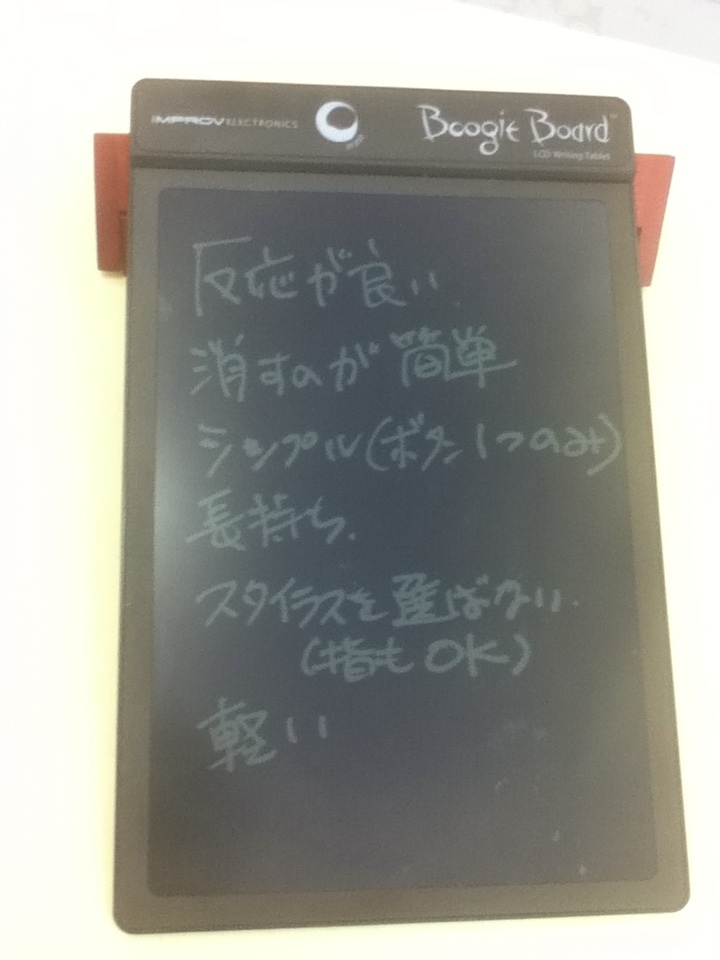 IMPROV ELECTRONICS
Boogie Board
LCD Writing Tablet
反応が良い
消すのが簡単
シンプル(ボタン1つのみ)
長持ち.
スタイラスを選ばない.
(指もOK)
軽い